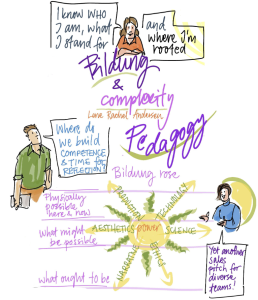 I know WHO
I am, what
I stand for
and
where I'm
rooted
Bildung
&
complexity
Lene Rachel Andersen
Pedagogy
Where do
we build
COMPETENCE
& TIME for
REFLECTION?
Bildung rose
Physically
possible
here & now
PRODUCTION
TECHNOLOGY
what might
be possible
AESTHETICS power SCIENCE
NARRATIVE
ETHICS
what ought to be
Yet another
sales
pitch for
diverse
teams!